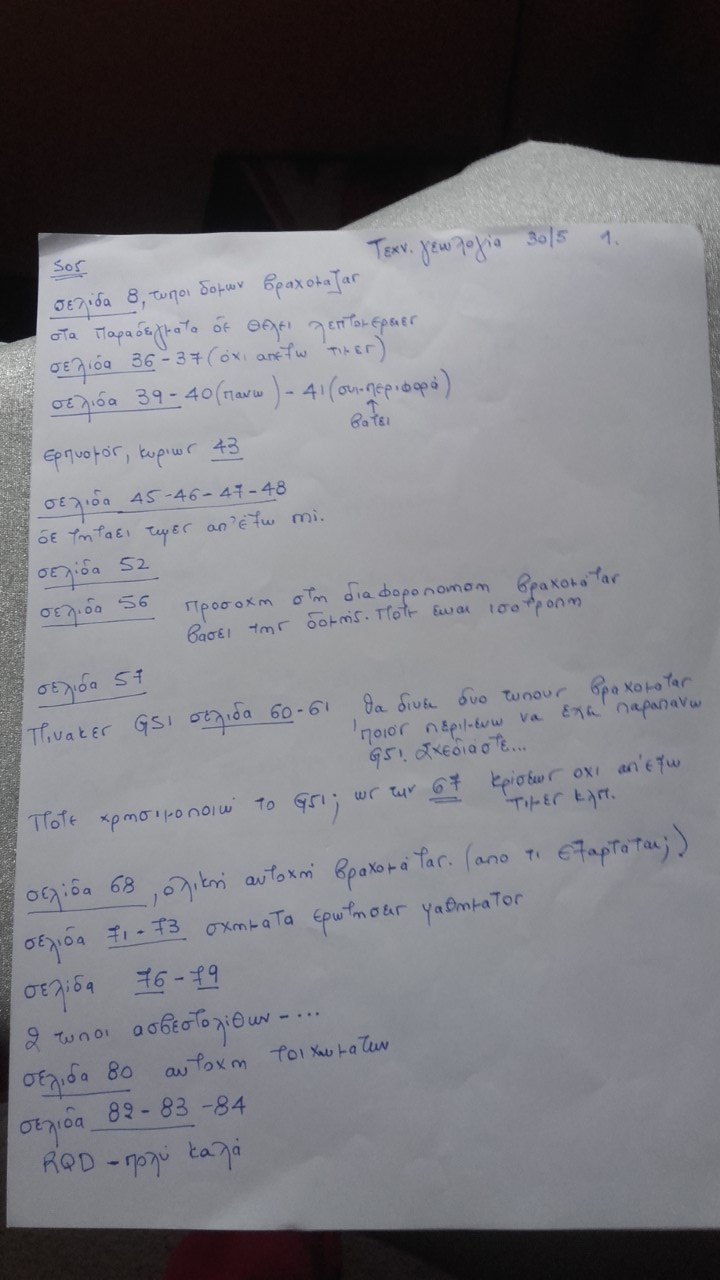 Τεχν. γεωλογία 30/5 1.
SOS
σελίδα 8, τυποι δομων βραχομαζας
στα παραδειγματα δε θέλει λεπτομερειες
σελίδα 36-37 (όχι απεξω τιμες)
σελίδα 39-40 (πανω) - 41 (συμπεριφορά)
↑
βαζει
ερπυσμός, κυριως 43
σελίδα 45-46-47-48
δε ζηταει τιμες απ'έξω mi.
σελίδα 52
σελίδα 56 προσοχη στη διαφοροποιηση βραχομαζας
βασει της δομής. Ποτε ειναι ισοτροπη
σελίδα 57
Πινακες GSI σελίδα 60-61 θα δινει δυο τυπους βραχομαζας
ποιος περιμενω να εχει παραπανω
GSI. Σχεδιάστε...
Ποτε χρησιμοποιώ το GSI; ως την 67 κρίσεως οχι απ'έξω
τιμες κλπ.
σελίδα 68, ολική αντοχή βραχομάζας. (απο τι εξαρτάται;)
σελίδα 71-73 σχηματα ερωτησεις μαθηματος
σελίδα 76-79
2 τυποι ασβεστολίθων - ...
σελιδα 80 αντοχη τοιχωματων
σελίδα 82-83-84
RQD - πολύ καλά